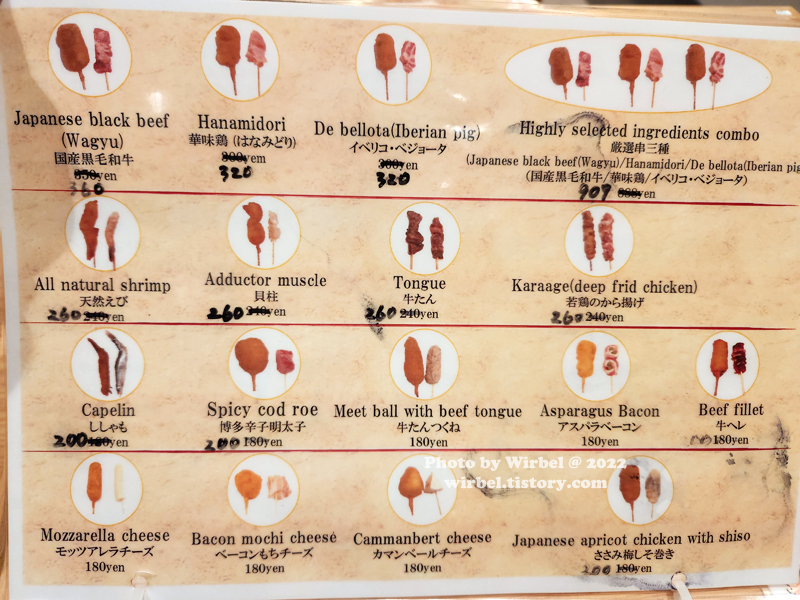 Japanese black beef
(Wagyu)
国産黒毛和牛
350yen
360
Hanamidori
華味鶏 (はなみどり)
300yem
320
De bellota(Iberian pig)
イベリコ・ベジョータ
300yen
320
Highly selected ingredients combo
厳選串三種
(Japanese black beef(Wagyu)/Hanamidori/De bellota(Iberian pig
(国産黒毛和牛/華味鶏/イベリコ・ベジョータ)
907 888yen
All natural shrimp
天然えび
260 240yen
Adductor muscle
貝柱
260 240yen
Tongue
牛たん
260 240yen
Karaage(deep frid chicken)
若鶏のから揚げ
260 240yen
Capelin
ししゃも
200 180yen
Spicy cod roe
博多辛子明太子
200 180yen
Meet ball with beef tongue
牛たんつくね
180yen
Asparagus Bacon
アスパラベーコン
180yen
Beef fillet
牛ヘレ
180yen
Photo by Wirbel @ 2022
wirbel.tistory.com
Mozzarella cheese
モッツアレラチーズ
180yen
Bacon mochi cheese
ベーコンもちチーズ
180yen
Cammanbert cheese
カマンベールチーズ
180yen
Japanese apricot chicken with shiso
ささみ梅しそ巻き
200 180yen